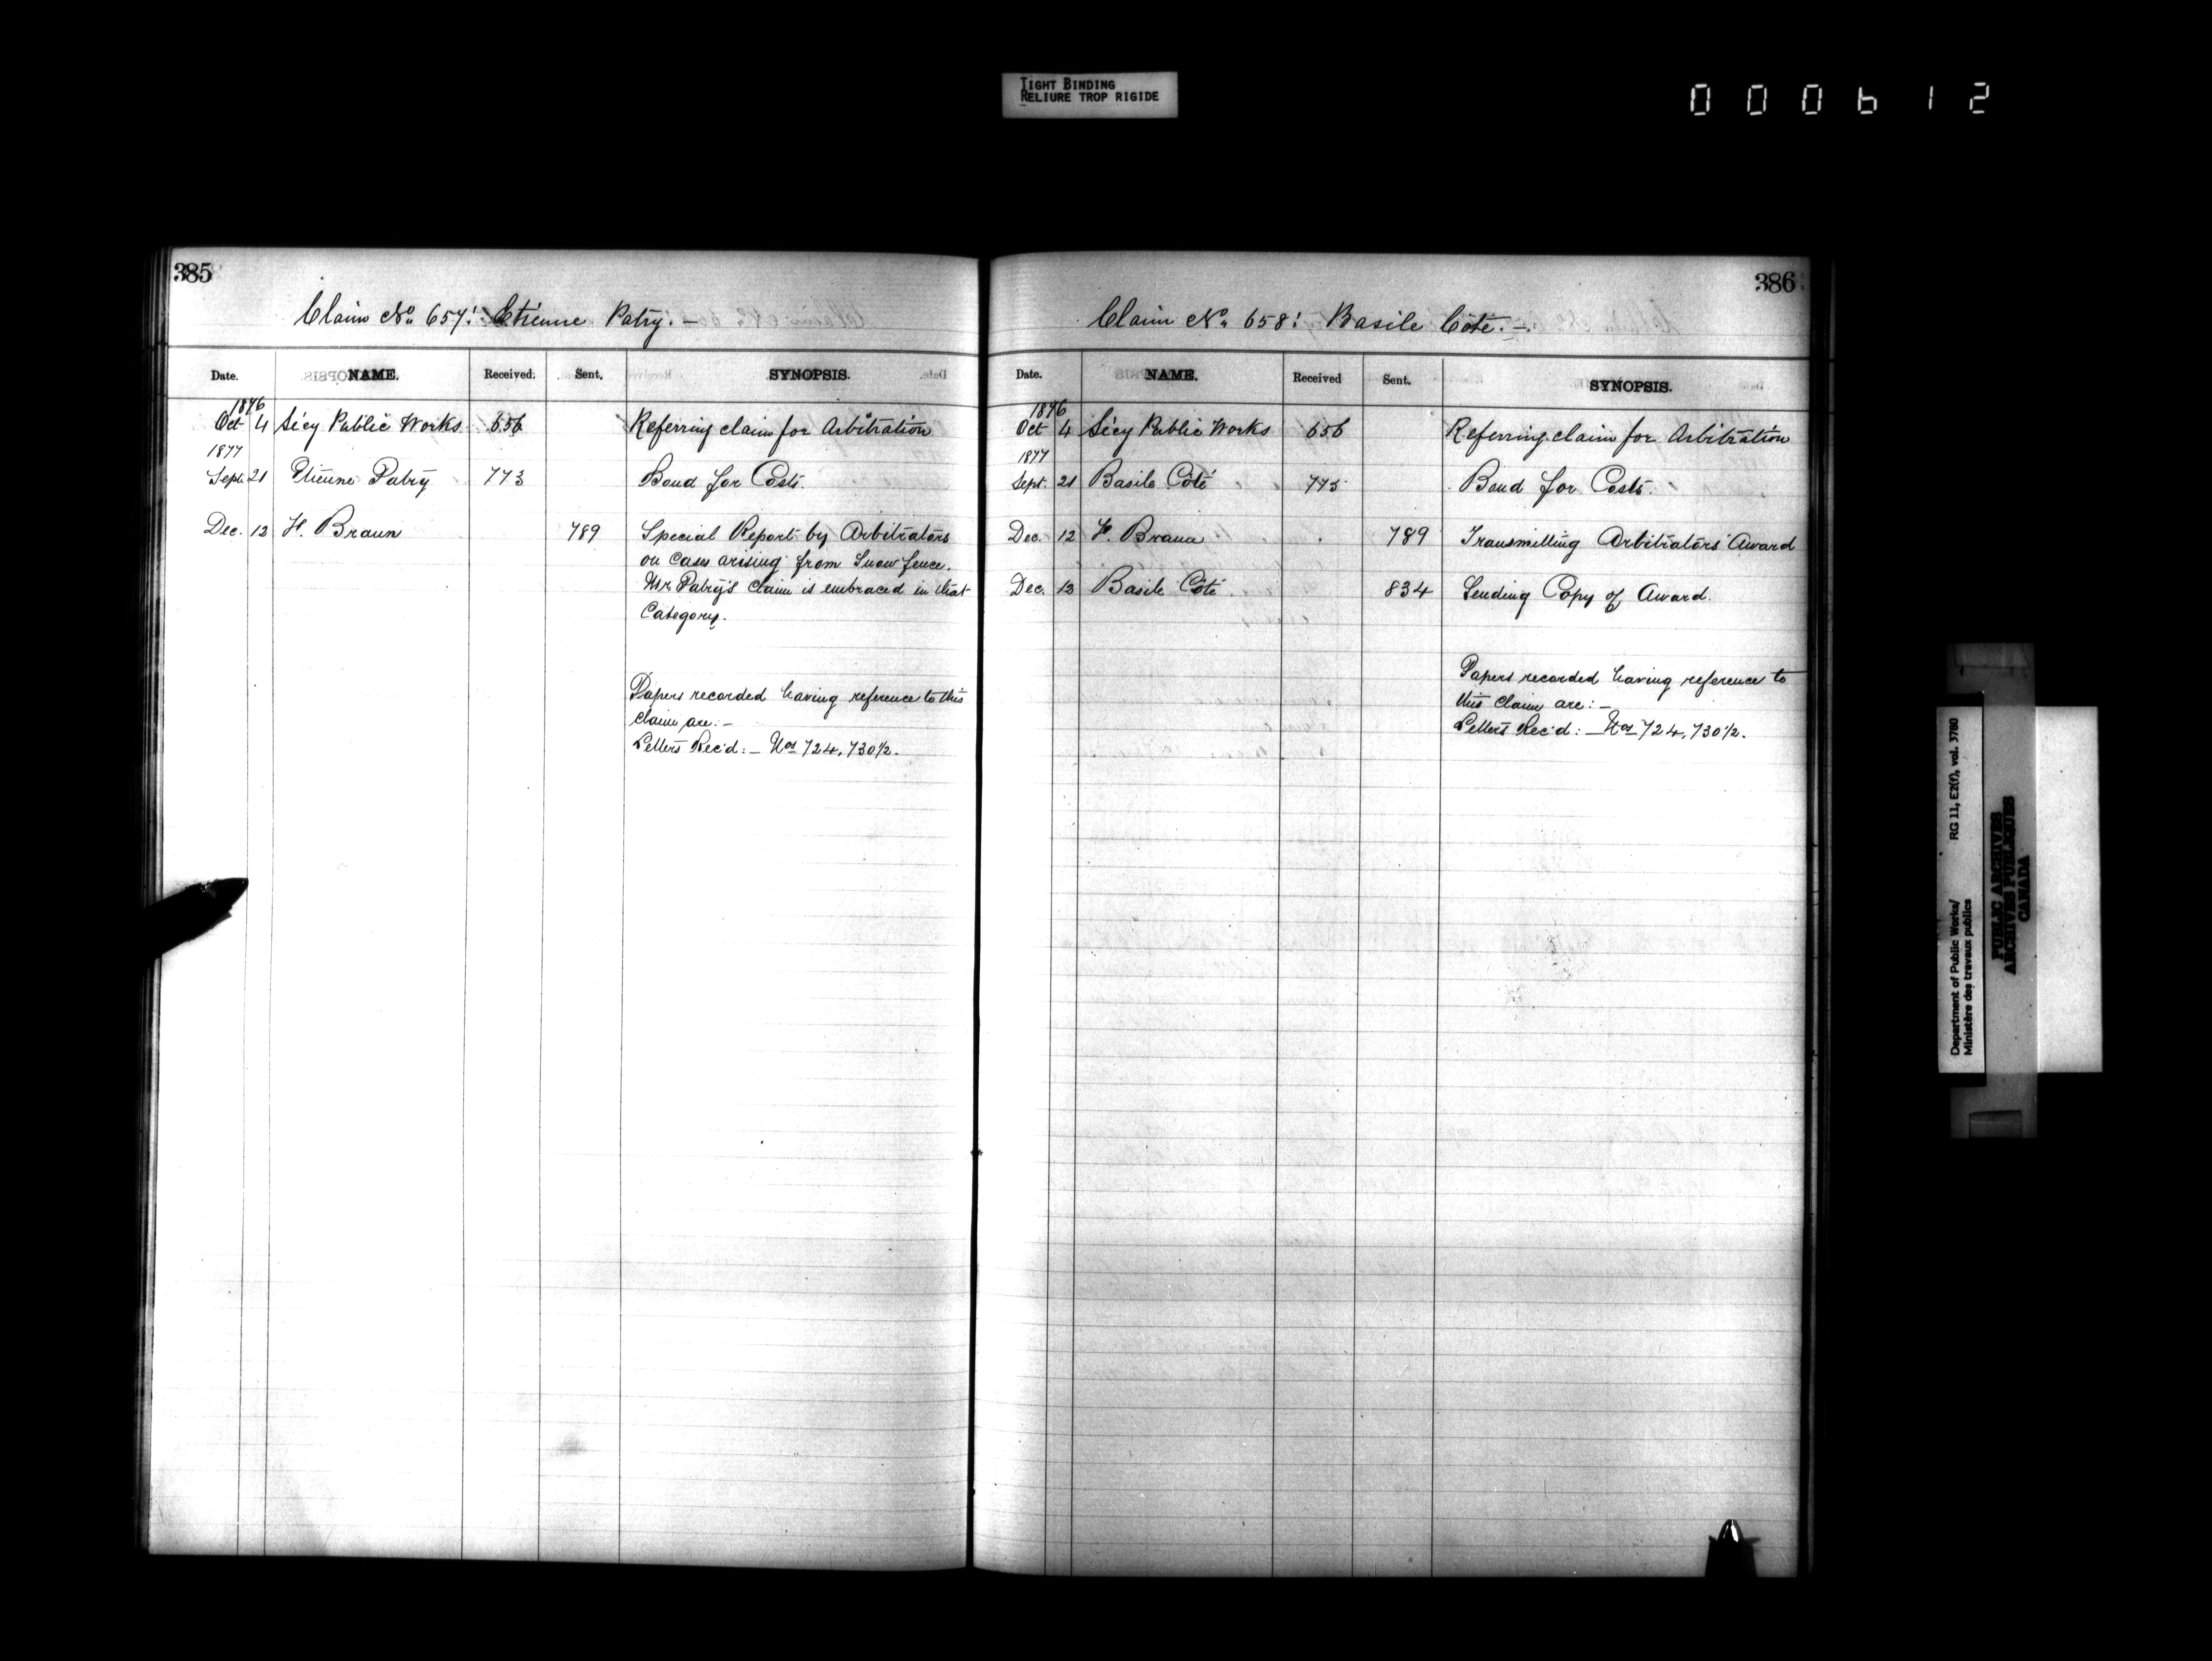 TIGHT BINDING
RELIURE TROP RIGIDE
000612
385
Claim No. 657: Etienne Patry. —
Date. NAME. Received. Sent. SYNOPSIS.
1876
Oct 4 Sécy Public Works 656 Referring claim for Arbitration
1877
Sept. 21 Etienne Patry 773 Bond for Costs.
Dec. 12 F. Braun 789 Special Report by Arbitrators
on Cases arising from Snow fence.
Mr Patry's Claim is embraced in that
Category.
Papers recorded having reference to this
Claim are: —
Letters Rec'd: — Nos 724, 730½.
386
Claim No. 658: Basile Coté. —
Date. NAME. Received Sent. SYNOPSIS.
1876
Oct 4 Sécy Public Works 656 Referring claim for Arbitration
1877
Sept. 21 Basile Coté 775 Bond for Costs.
Dec. 12 F. Braun 789 Transmitting Arbitrators' Award
Dec. 13 Basile Coté 834 Sending Copy of Award.
Papers recorded having reference to
this Claim are: —
Letters Rec'd: — Nos 724, 730½.
Department of Public Works/ RG 11, E2(f), vol. 3780
Ministère des travaux publics
PUBLIC ARCHIVES
ARCHIVES PUBLIQUES
CANADA